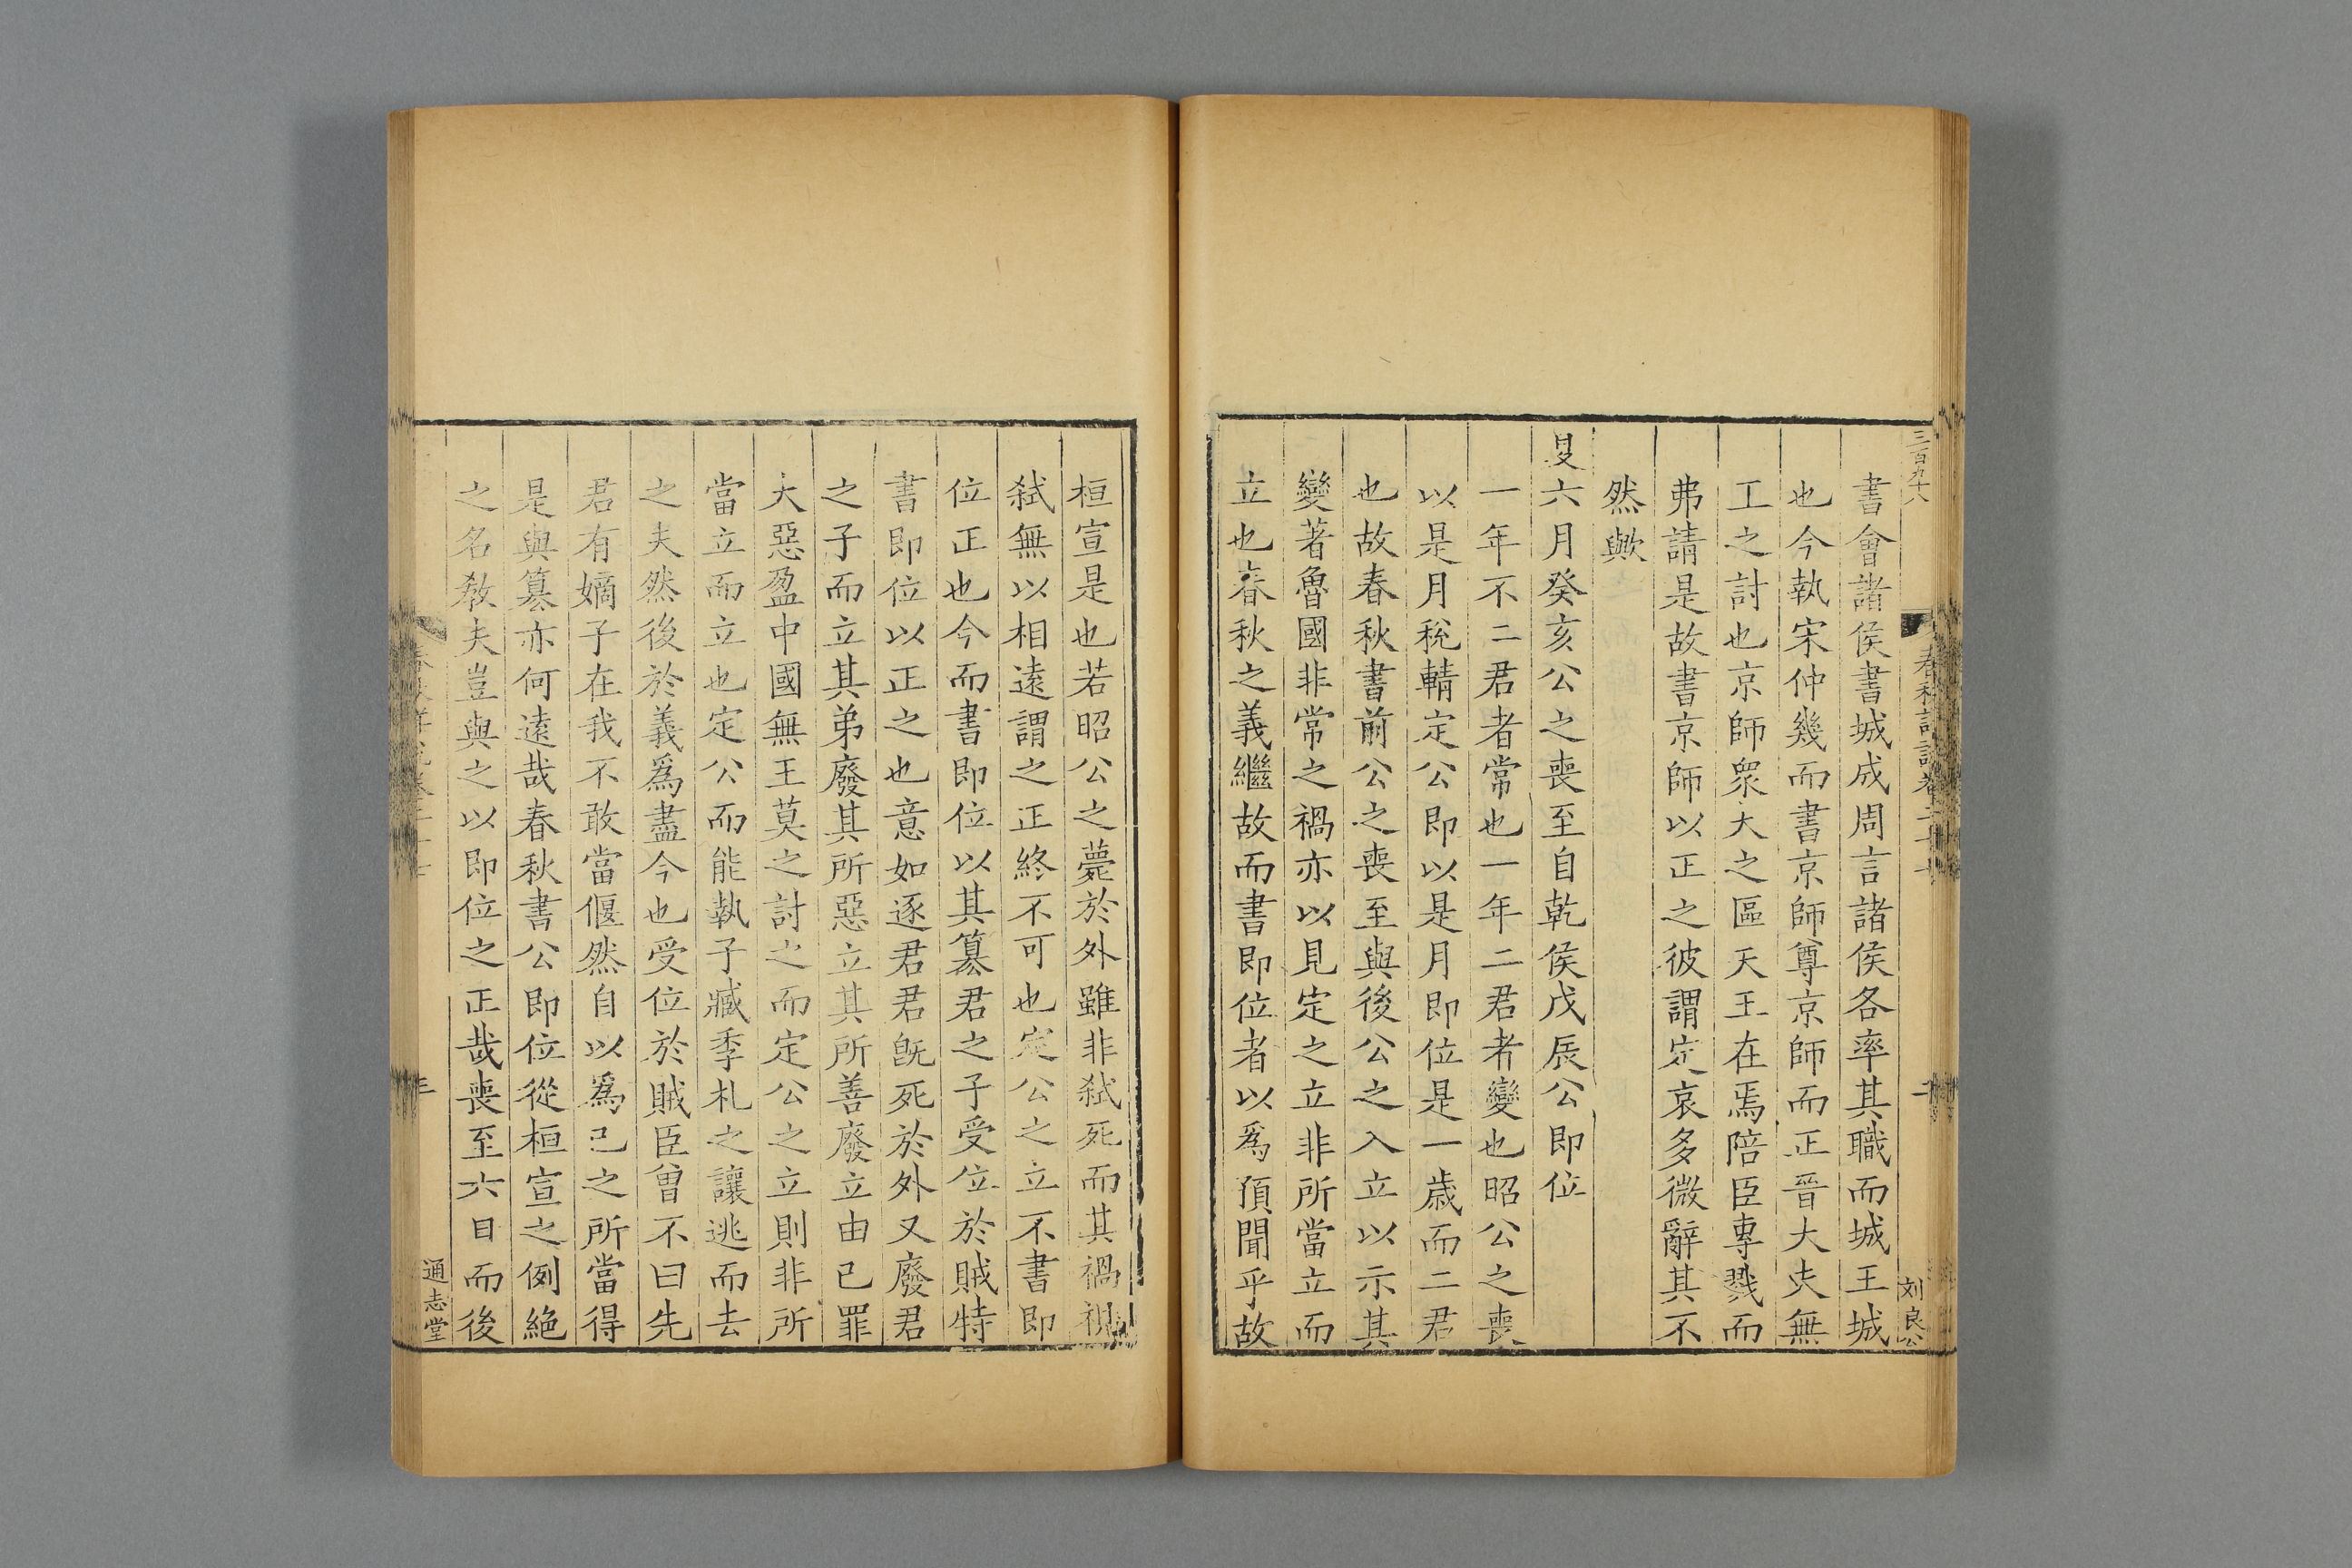 三百九十八
書會諸侯書城成周言諸侯各率其職而城王城
也今執宋仲幾而書京師尊京師而正晉大夫無
王之討也京師衆大之區天王在焉陪臣專戮而
弗請是故書京師以正之彼謂定哀多微辭其不
然歟
夏六月癸亥公之喪至自乾侯戊辰公即位
一年不二君者常也一年二君者變也昭公之喪
以是月稅輤定公即以是月即位是一歲而二君
也故春秋書前公之喪至與後公之入立以示其
變著魯國非常之禍亦以見定之立非所當立而
立也春秋之義繼故而書即位者以爲預聞乎故
刘良公
桓宣是也若昭公之薨於外雖非弒死而其禍視
弒無以相遠謂之正終不可也定公之立不書即
位正也今而書即位以其簒君之子受位於賊特
書即位以正之也意如逐君君旣死於外又廢君
之子而立其弟廢其所惡立其所善廢立由已罪
大惡盈中國無王莫之討之而定公之立則非所
當立而立也定公而能執子臧季札之讓逃而去
之夫然後於義爲盡今也受位於賊臣曾不曰先
君有嫡子在我不敢當偃然自以爲己之所當得
是與簒亦何遠哉春秋書公即位從桓宣之例絶
之名敎夫豈與之以即位之正哉喪至六日而後
通志堂